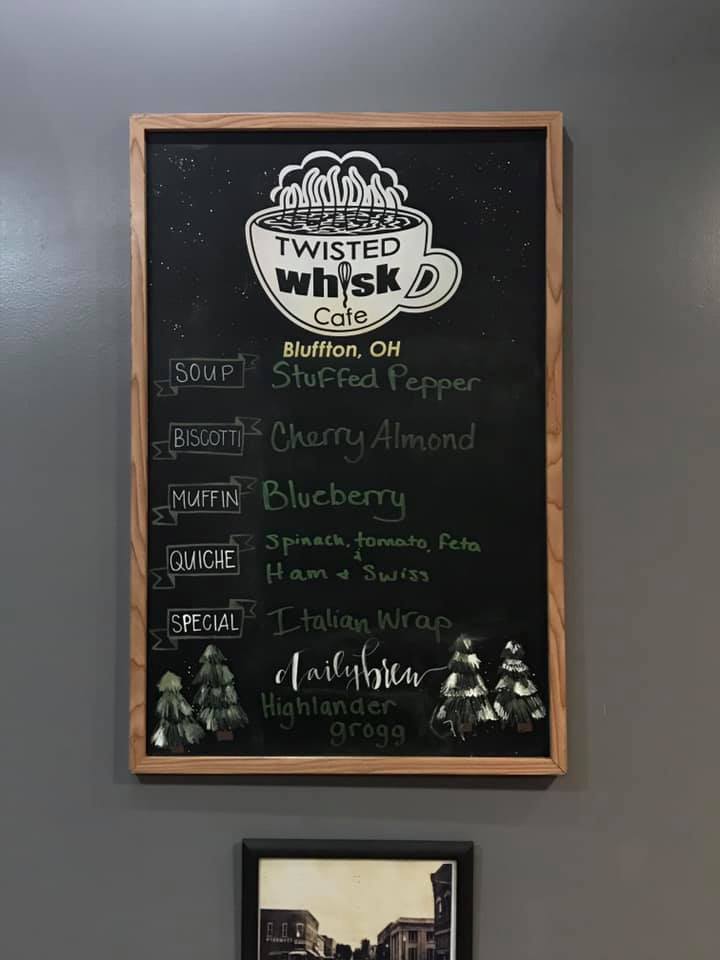 TWISTED
whisk
Cafe
Bluffton, OH
SOUP Stuffed Pepper
BISCOTTI Cherry Almond
MUFFIN Blueberry
QUICHE Spinach, tomato, feta
&
Ham & Swiss
SPECIAL Italian Wrap
dailybrew
Highlander
grogg